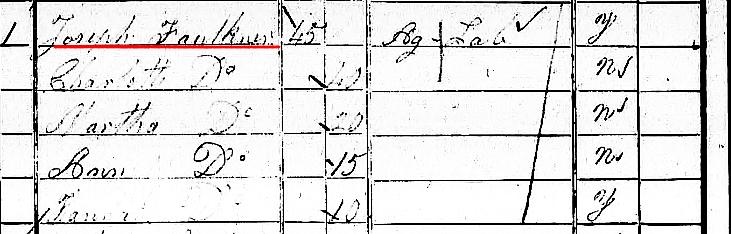 1 Joseph Faulkner 45 Ag Lab y
Charlotte Do 40 n
Martha Do 20 n
Ann Do 15 n
Do 10 y